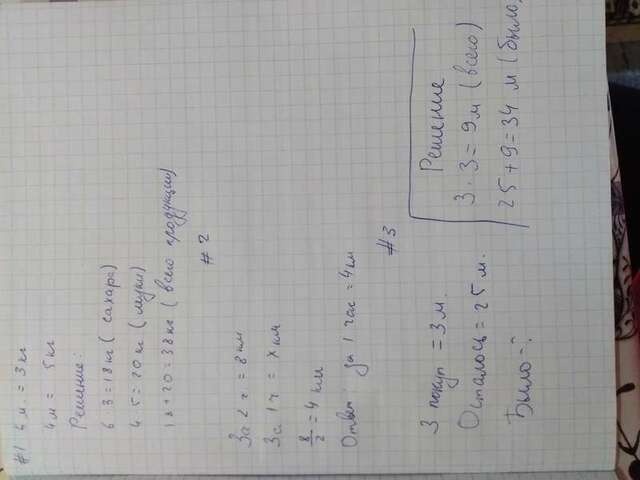 #1 6 м. = 3 кг
4 м = 5 кг
Решение:
6 · 3 = 18 кг ( сахара)
4 · 5 = 20 кг ( муки)
18 + 20 = 38 кг ( всего продукции)
#2
За 2 ч = 8 км
За 1 ч = x км
8/2 = 4 км
Ответ: за 1 час = 4 км
#3
3 покуп = 3 м.
Осталось = 25 м.
Было - ?
Решение
3 · 3 = 9 м ( всего)
25 + 9 = 34 м ( было)